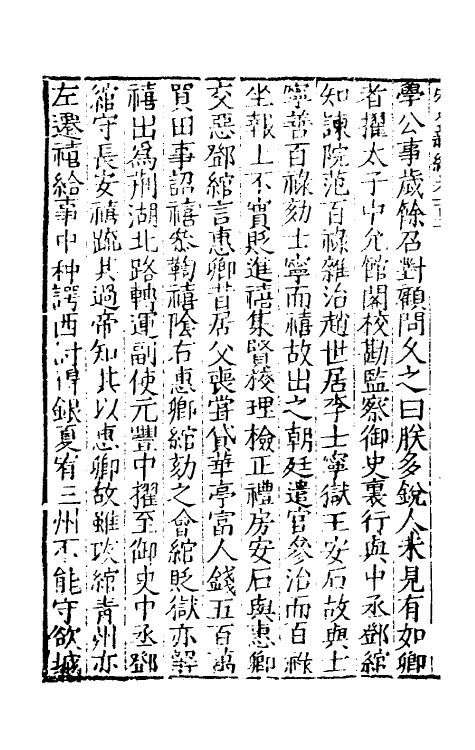 學公事歲餘召對顧問久之曰朕多銳人未見有如卿
者擢太子中允館閣校勘監察御史裏行與中丞鄧綰
知諫院范百祿雜治趙世居李士寧獄王安石故與士
寧善百祿劾士寧而禧故出之朝廷遣官參治而百祿
坐報上不實貶進禧集賢校理檢正禮房安石與惠卿
交惡鄧綰言惠卿昔居父喪嘗貸華亭富人錢五百萬
買田事詔禧叅鞫禧陰右惠卿綰劾之會綰貶獄亦解
禧出爲荆湖北路轉運副使元豐中擢至御史中丞鄧
綰守長安禧䟽其過帝知其以惠卿故雖改綰青州亦
左遷禧給事中种諤西討得銀夏宥三州不能守欲城